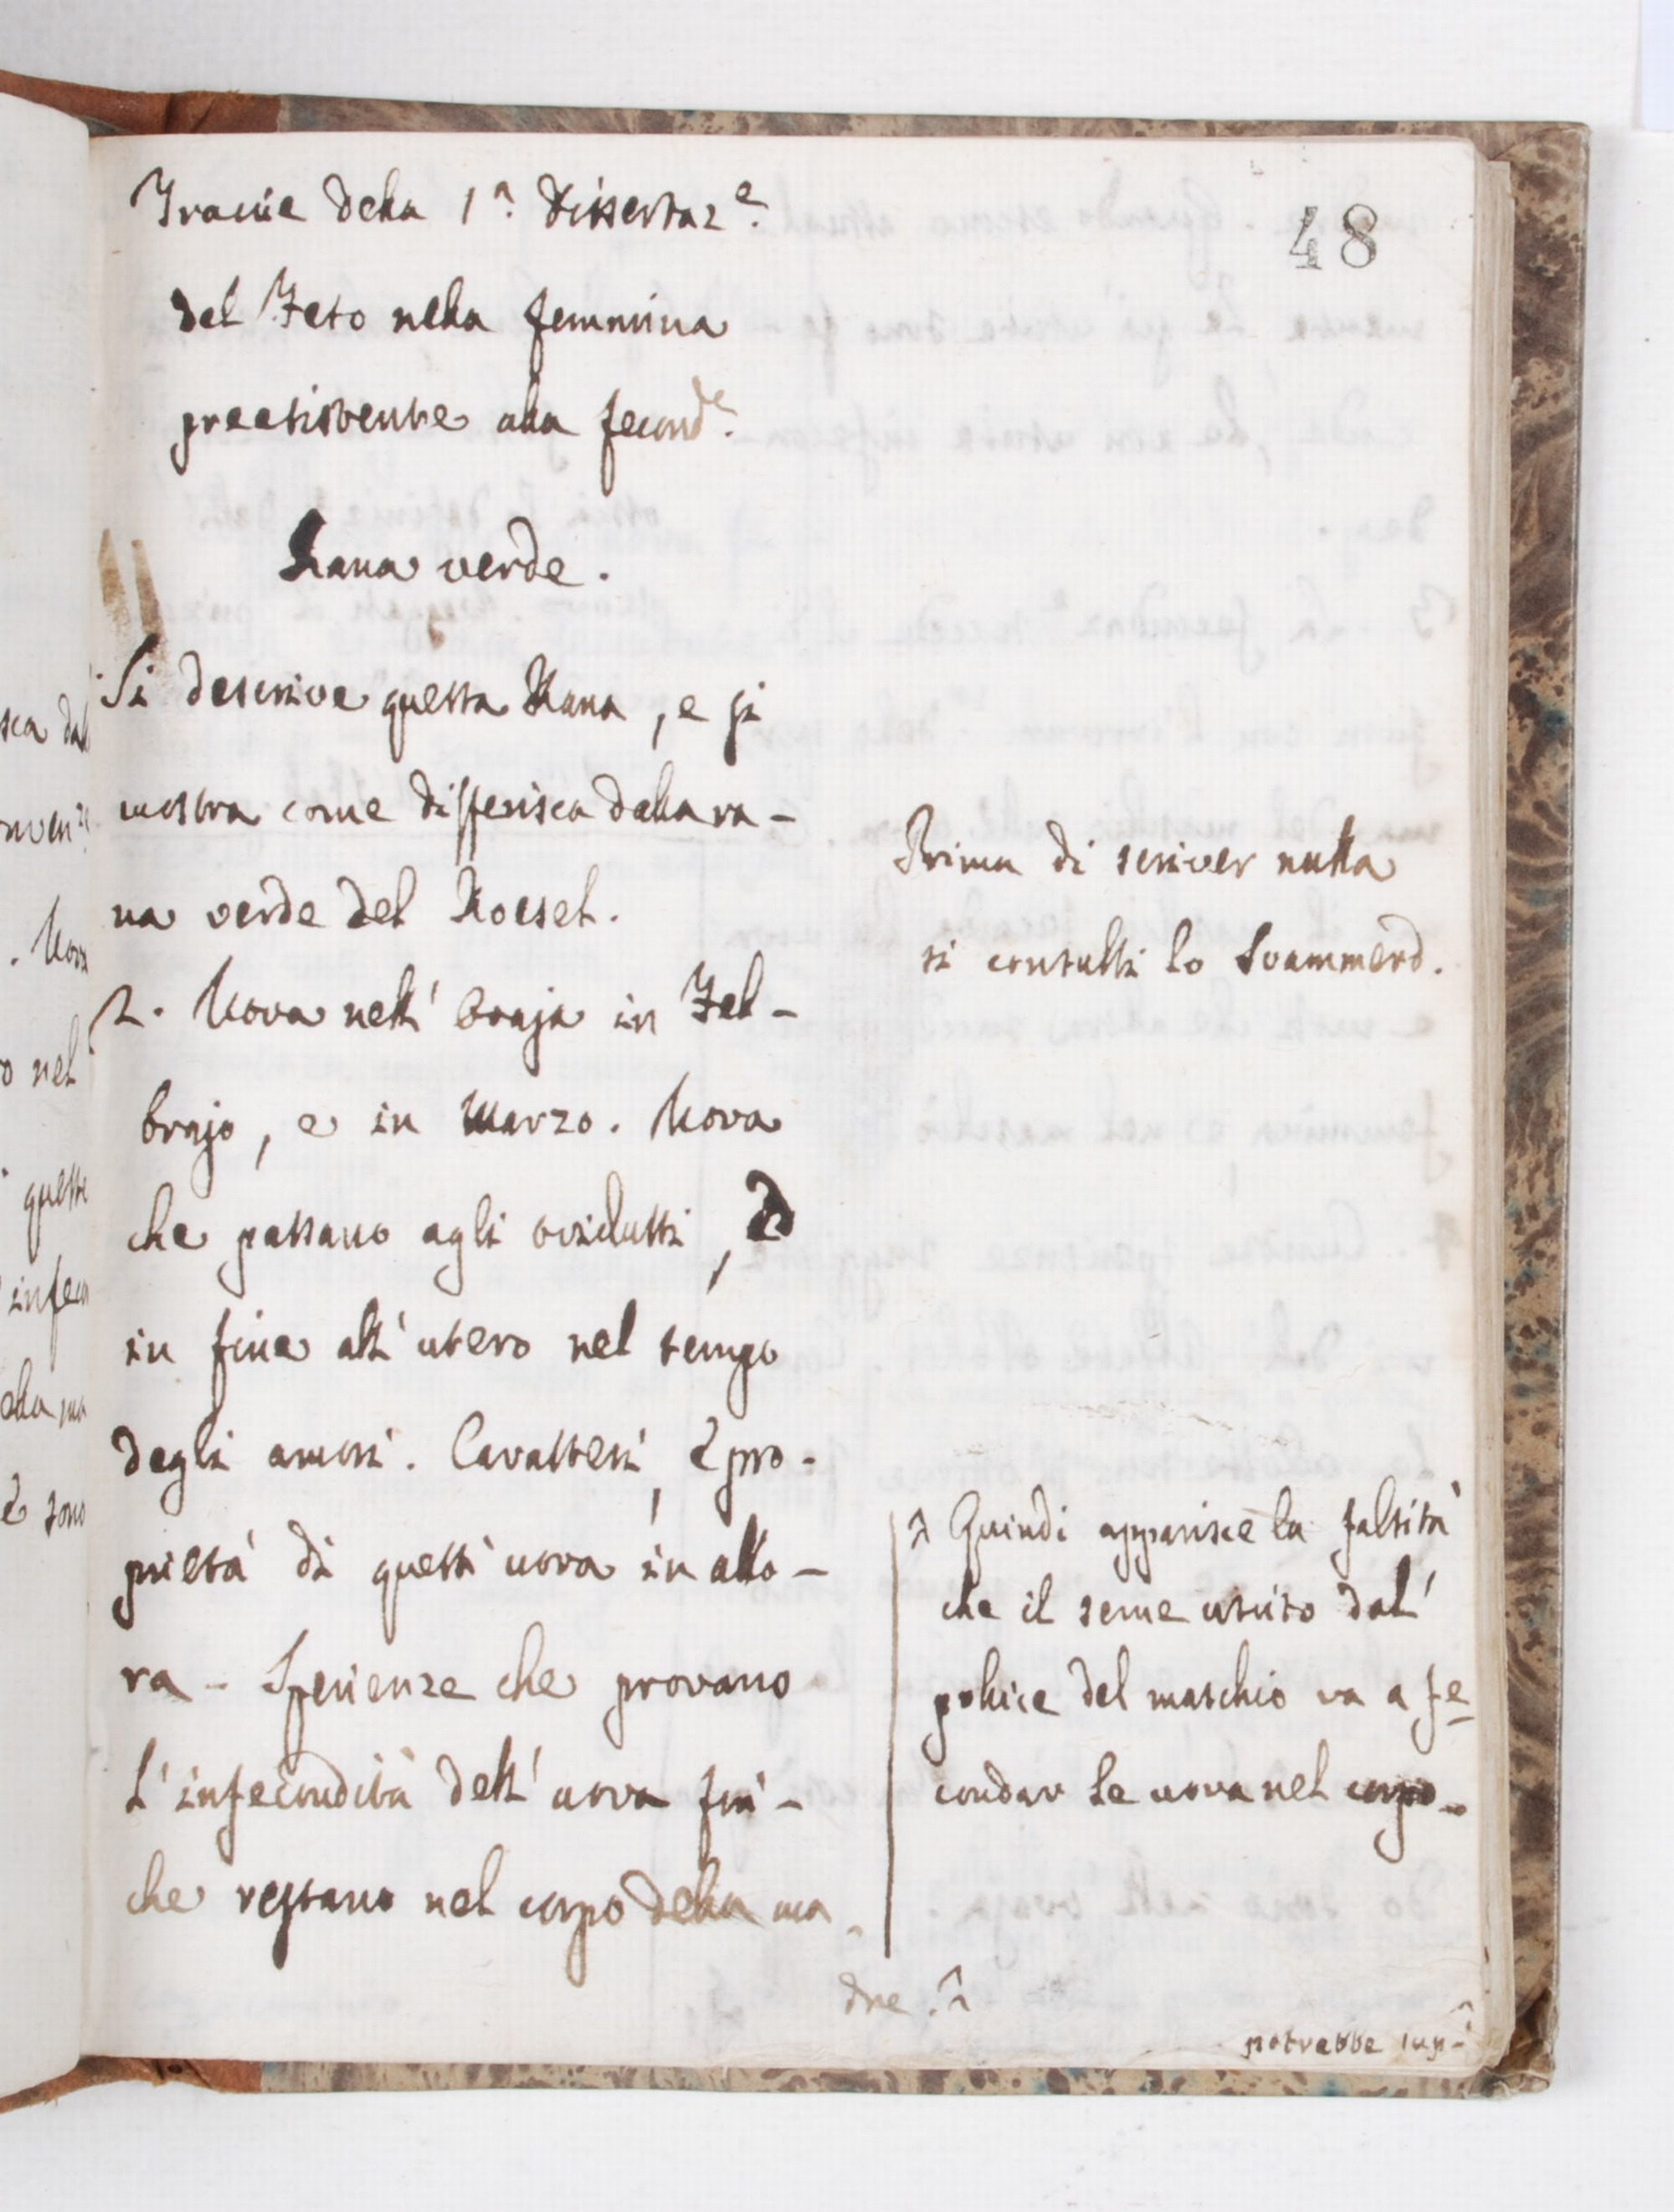 48
Traccie della 1ª. Dissertazᵉ.
del Feto nella femmina
preesistente alla fecondᵉ.
Rana verde.
Si descrive questa Rana, e si
mostra come differisca dalla ra-
na verde del Roesel.
2. Uova nell' ovaja in Feb-
brajo, e in Marzo. Uova
che passano agli ovidutti, ed
in fine all' utero nel tempo
degli amori. Caratteri, e pro-
prietà di quest' uova in allo-
ra - Sperienze che provano
l' infecondità dell' uova fin-
che restano nel corpo della ma
dre.^
Prima di scriver nulla
si consulti lo Svammerd.
^ Quindi apparisce la falsità
che il seme uscito dal'
pollice del maschio va a fe
condar le uova nel corpo-
potrebbe sup-
sca dal
. Uova
o nel
queste
infecon
ella ma
e sono